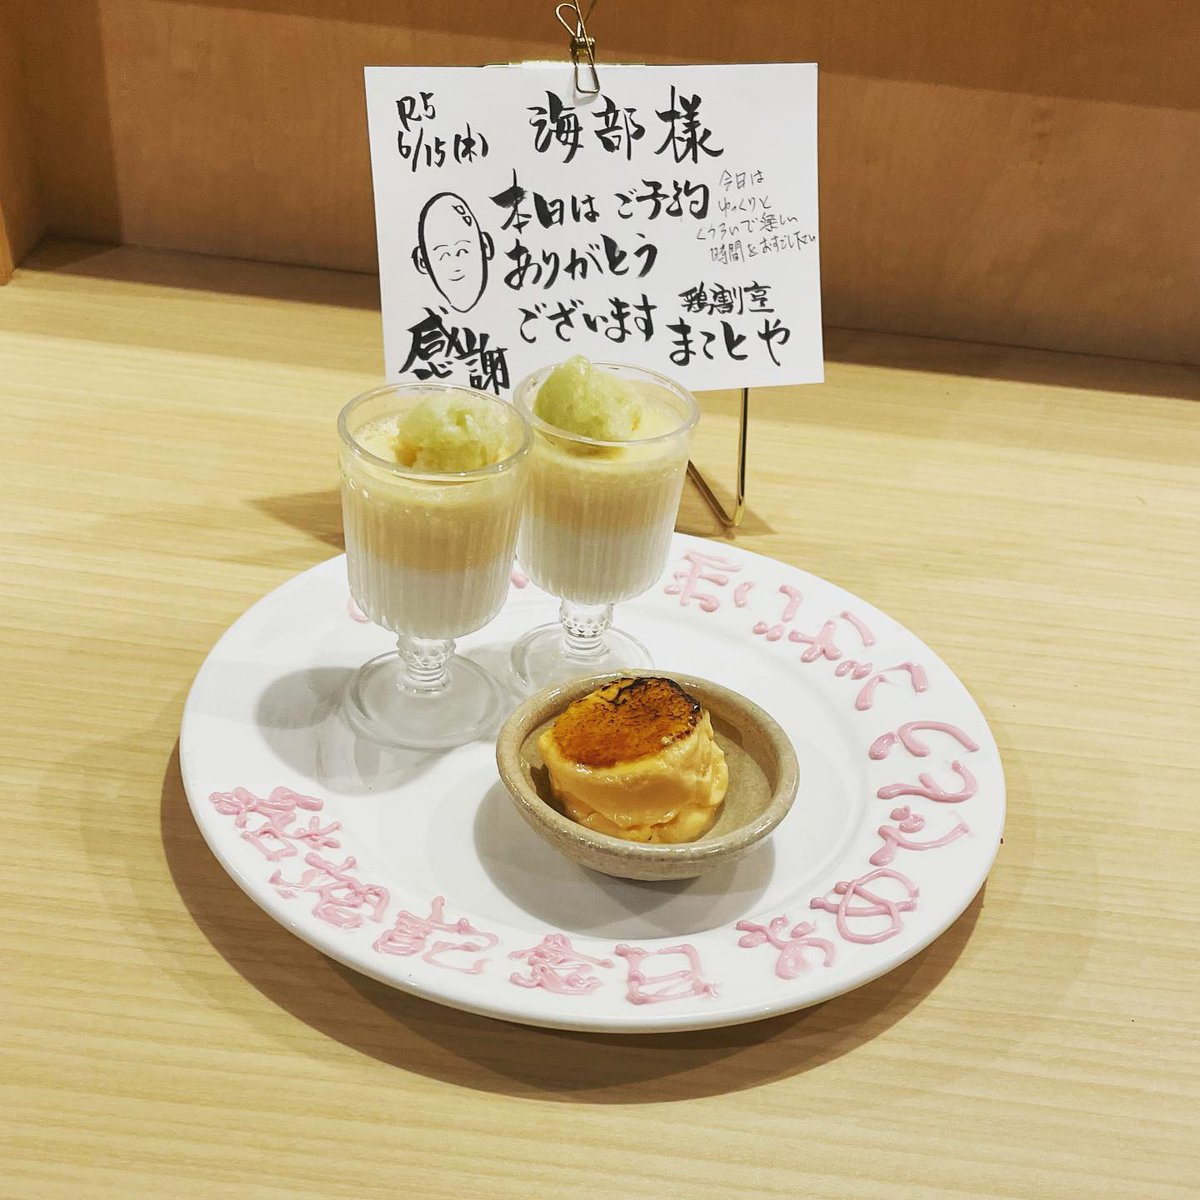 R5
6/15(木)
海部様
本日はご予約
ありがとう
ございます
今日は
ゆっくりと
くつろいで楽しい
時間をおすごし下さい
鶏割烹
まことや
感謝
結婚記念日
おめでとうございます